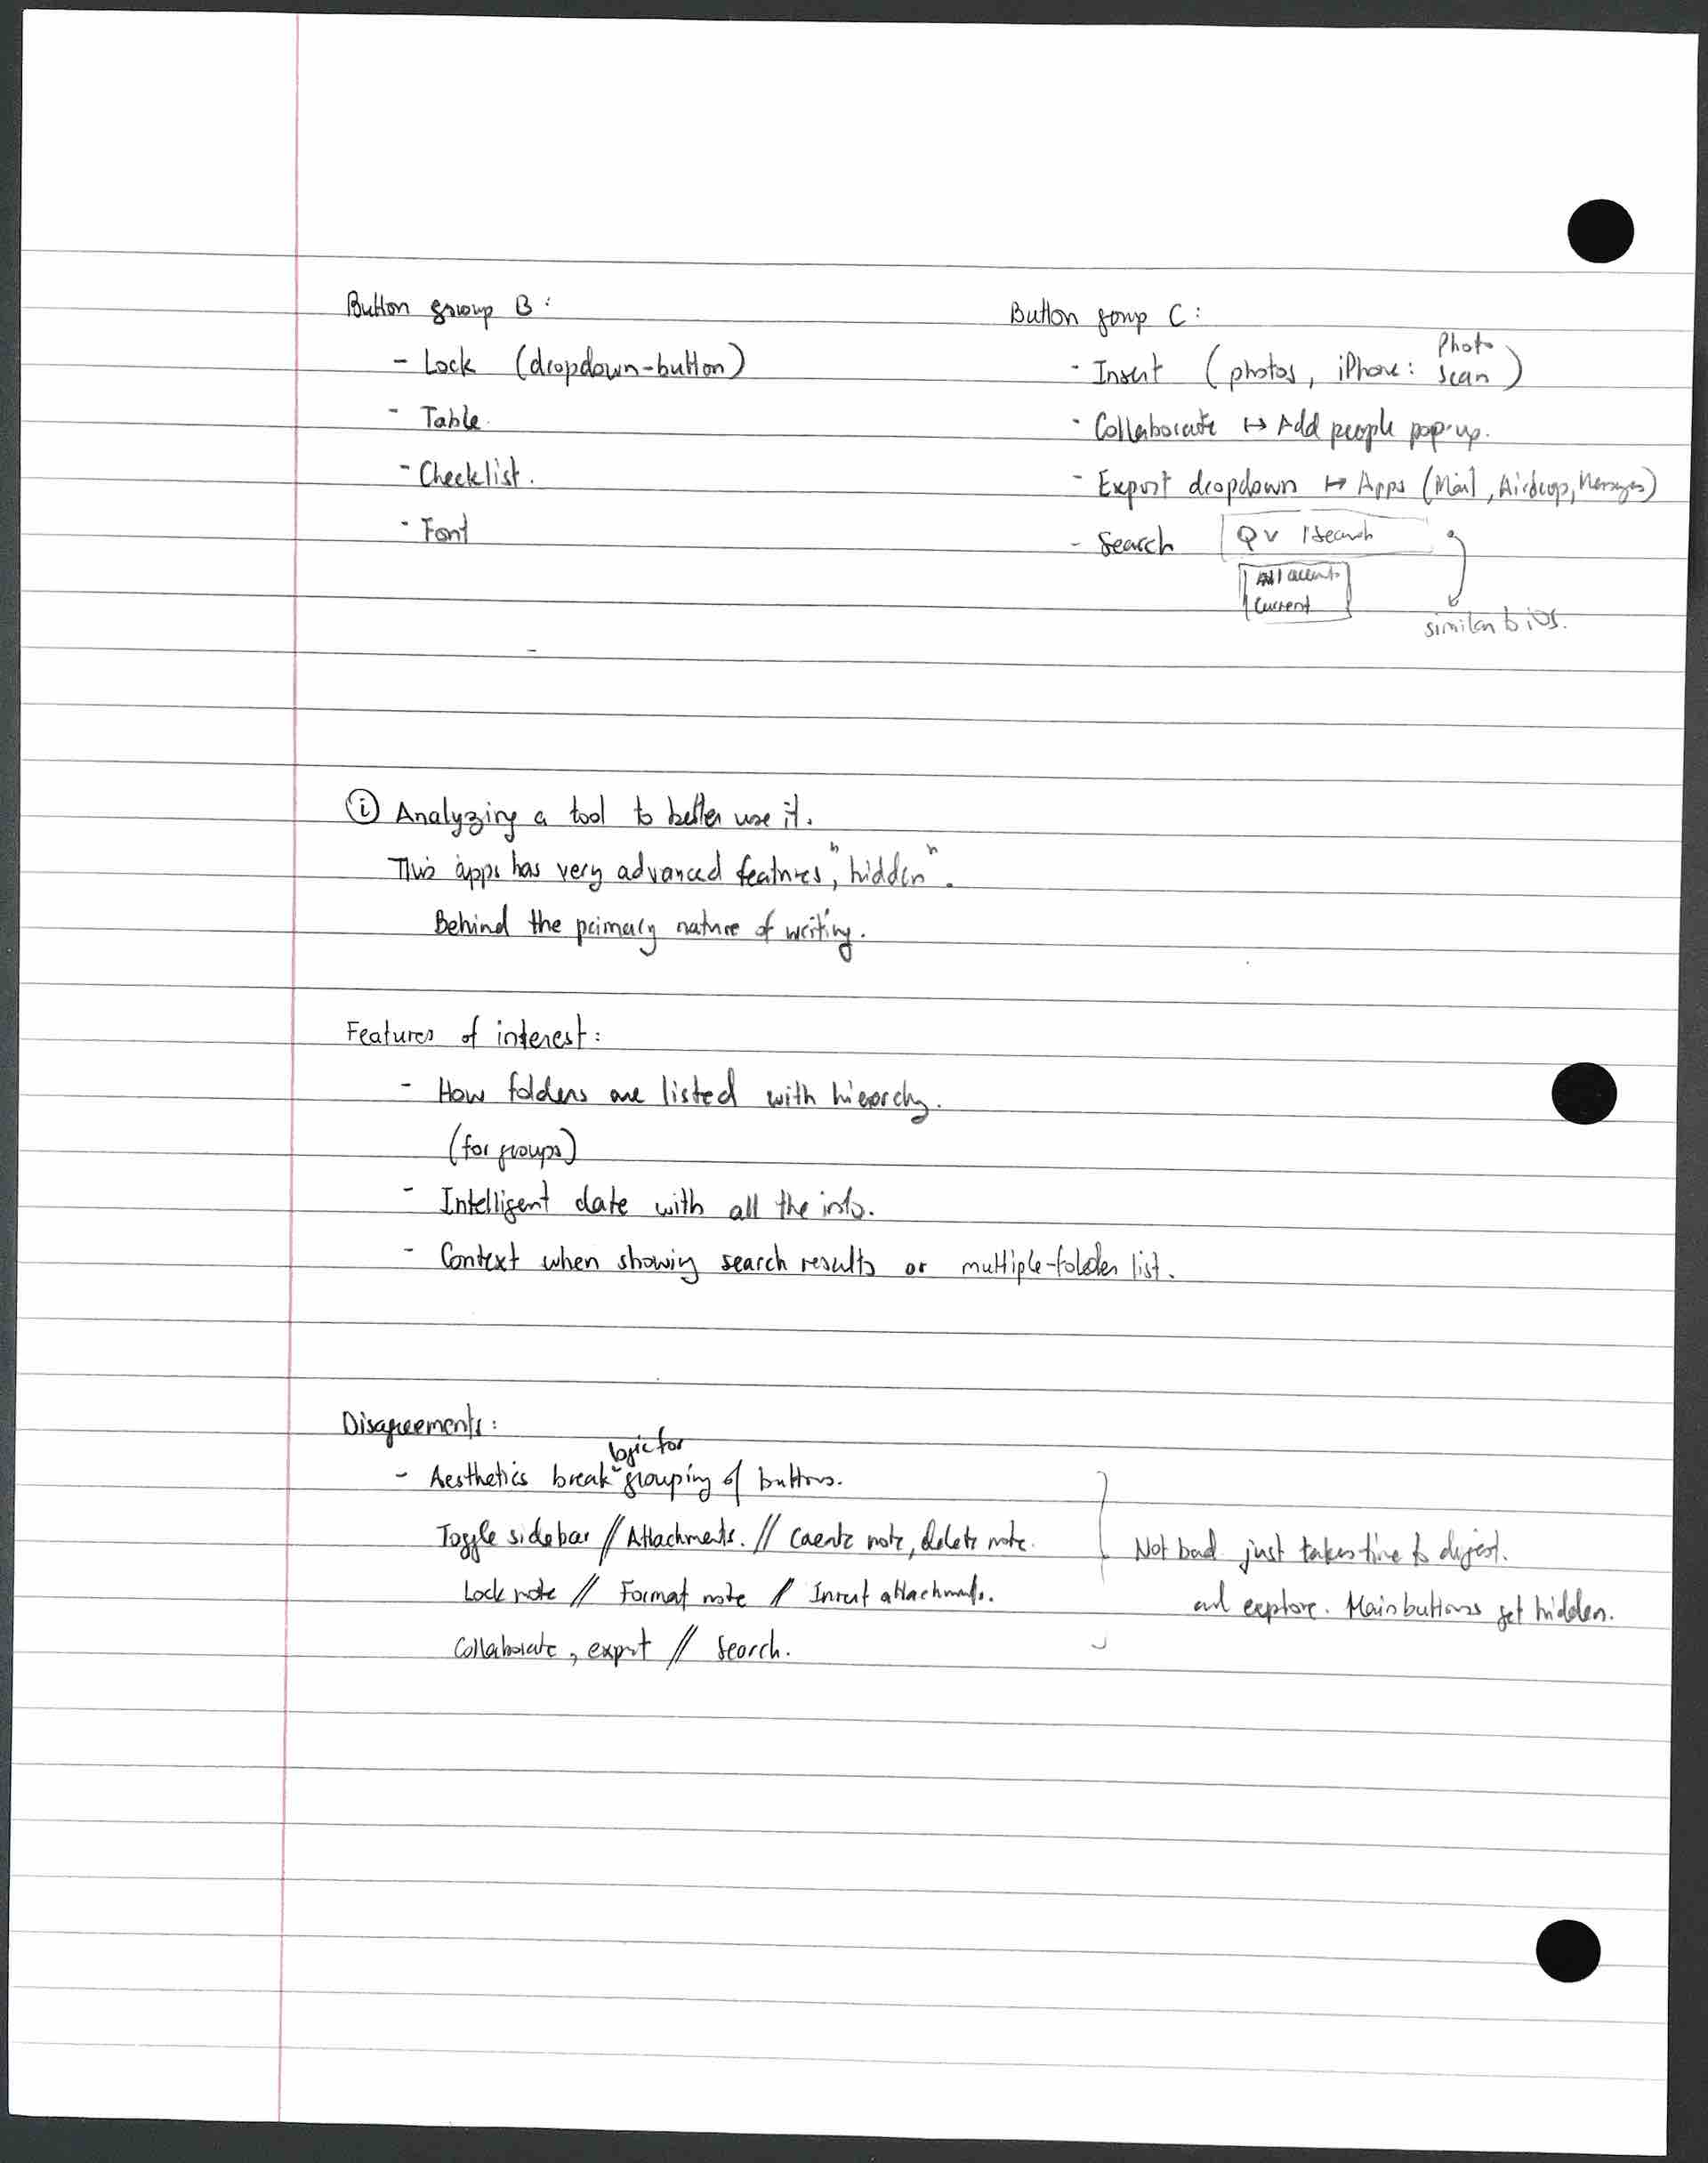 Button group B :
- Lock (dropdown-button)
- Table.
- Checklist.
- Font
Button group C :
Photo
- Insert (photos, iPhone: Scan)
- Collaborate ↦ Add people pop-up.
- Export dropdown ↦ Apps (Mail, Airdrop, Messages)
- Search Q v | Search
All accounts
Current
similar to iOS.
ⓘ Analyzing a tool to better use it.
This apps has very advanced features, "hidden".
Behind the primary nature of writing.
Features of interest:
- How folders are listed with hierarchy.
(for groups)
- Intelligent date with all the info.
- Context when showing search results or multiple-folder list.
Disagreements:
logic for
- Aesthetics break grouping of buttons.
Toggle sidebar // Attachments. // Create note, delete note.
Lock note // Format note // Insert attachments.
Collaborate, export // Search.
Not bad just takes time to digest.
and explore. Main buttons get hidden.